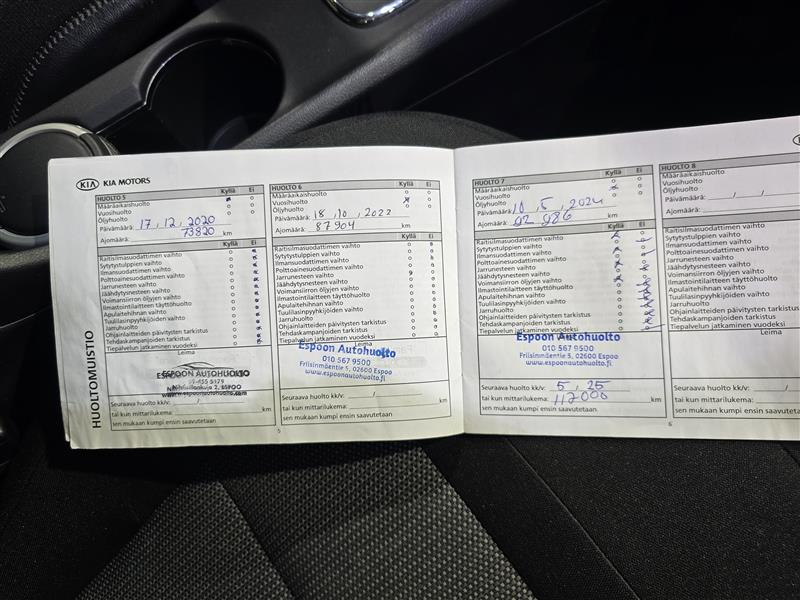 KIA KIA MOTORS
HUOLTOMUISTIO
HUOLTO 5 Kyllä Ei
Määräaikaishuolto
Vuosihuolto
Öljyhuolto
Päivämäärä: 17, 12, 2020
Ajomäärä: 73820 km
Kyllä Ei
Raitisilmasuodattimen vaihto
Sytytystulppien vaihto
Ilmansuodattimen vaihto
Polttoainesuodattimen vaihto
Jarrunesteen vaihto
Jäähdytysnesteen vaihto
Voimansiirron öljyjen vaihto
Ilmastointilaitteen täyttöhuolto
Apulaitehihnan vaihto
Tuulilasinpyyhkijöiden vaihto
Jarruhuolto
Ohjainlaitteiden päivitysten tarkistus
Tehdaskampanjoiden tarkistus
Tiepalvelun jatkaminen vuodeksi
Leima
ESPOON AUTOHUOLTO
www.espoonautohuolto.com
Seuraava huolto kk/v: /
tai kun mittarilukema: km
sen mukaan kumpi ensin saavutetaan
5
HUOLTO 6 Kyllä Ei
Määräaikaishuolto
Vuosihuolto
Öljyhuolto
Päivämäärä: 18, 10, 2022
Ajomäärä: 87904 km
Kyllä Ei
Raitisilmasuodattimen vaihto
Sytytystulppien vaihto
Ilmansuodattimen vaihto
Polttoainesuodattimen vaihto
Jarrunesteen vaihto
Jäähdytysnesteen vaihto
Voimansiirron öljyjen vaihto
Ilmastointilaitteen täyttöhuolto
Apulaitehihnan vaihto
Tuulilasinpyyhkijöiden vaihto
Jarruhuolto
Ohjainlaitteiden päivitysten tarkistus
Tehdaskampanjoiden tarkistus
Tiepalvelun jatkaminen vuodeksi
Leima
Espoon Autohuolto
010 567 9500
Friisinmäentie 5, 02600 Espoo
www.espoonautohuolto.fi
Seuraava huolto kk/v: /
tai kun mittarilukema: km
sen mukaan kumpi ensin saavutetaan
HUOLTO 7 Kyllä Ei
Määräaikaishuolto
Vuosihuolto
Öljyhuolto
Päivämäärä: 10, 5, 2024
Ajomäärä: 92 986 km
Kyllä Ei
Raitisilmasuodattimen vaihto
Sytytystulppien vaihto
Ilmansuodattimen vaihto
Polttoainesuodattimen vaihto
Jarrunesteen vaihto
Jäähdytysnesteen vaihto
Voimansiirron öljyjen vaihto
Ilmastointilaitteen täyttöhuolto
Apulaitehihnan vaihto
Tuulilasinpyyhkijöiden vaihto
Jarruhuolto
Ohjainlaitteiden päivitysten tarkistus
Tehdaskampanjoiden tarkistus
Tiepalvelun jatkaminen vuodeksi
Espoon Autohuolto
010 567 9500
Friisinmäentie 5, 02600 Espoo
www.espoonautohuolto.fi
Seuraava huolto kk/v: 5, 25
tai kun mittarilukema: 112000 km
sen mukaan kumpi ensin saavutetaan
6
HUOLTO 8
Määräaikaishuolto
Vuosihuolto
Öljyhuolto
Päivämäärä: / /
Ajomäärä:
Raitisilmasuodattimen vaihto
Sytytystulppien vaihto
Ilmansuodattimen vaihto
Polttoainesuodattimen vaihto
Jarrunesteen vaihto
Jäähdytysnesteen vaihto
Voimansiirron öljyjen vaihto
Ilmastointilaitteen täyttöhuolto
Apulaitehihnan vaihto
Tuulilasinpyyhkijöiden vaihto
Jarruhuolto
Ohjainlaitteiden päivitysten tarkistus
Tehdaskampanjoiden tarkistus
Tiepalvelun jatkaminen vuodeksi
Leima
Seuraava huolto kk/v: /
tai kun mittarilukema:
sen mukaan kumpi ensin saavutetaan